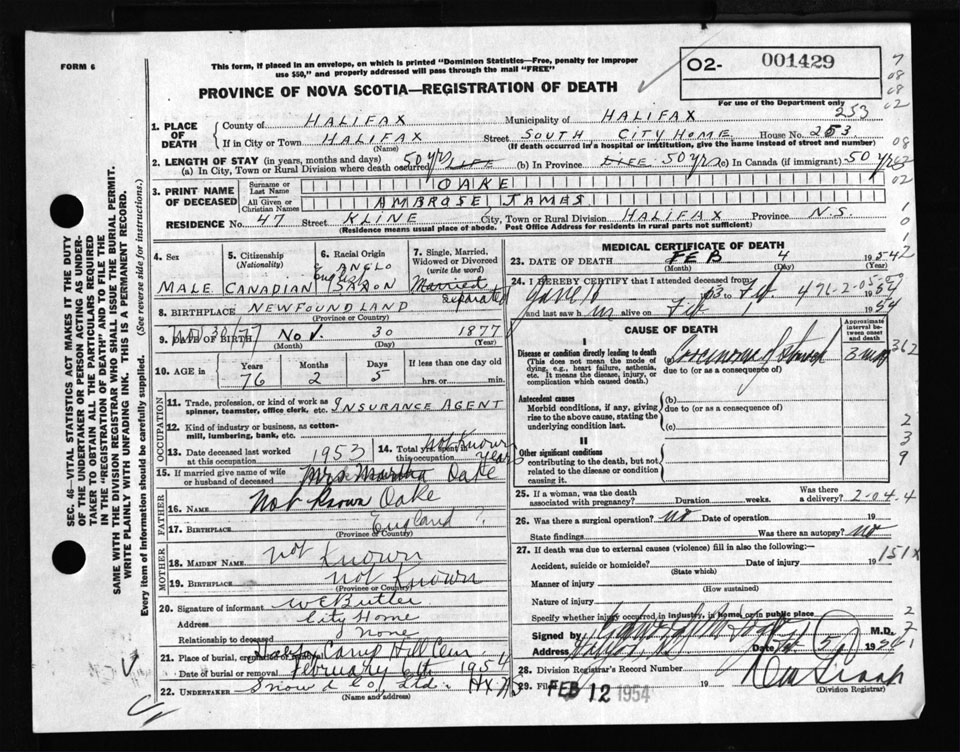 FORM 6
This form, if placed in an envelope, on which is printed "Dominion Statistics—Free, penalty for improper
use $50," and properly addressed will pass through the mail "FREE"
PROVINCE OF NOVA SCOTIA—REGISTRATION OF DEATH
O2- 001429
For use of the Department only
7
08
08
02
253
1. PLACE OF DEATH
County of HALIFAX Municipality of HALIFAX
If in City or Town HALIFAX Street SOUTH CITY HOME House No. 253
(Name) (If death occurred in a hospital or institution, give the name instead of street and number)
08
2. LENGTH OF STAY (in years, months and days)
(a) In City, Town or Rural Division where death occurred 50 yrs LIFE (b) In Province LIFE 50 yrs (c) In Canada (if immigrant) 50 yrs
02
3. PRINT NAME OF DECEASED
Surname or Last Name OAKE
All Given or Christian Names AMBROSE JAMES
RESIDENCE No. 47 Street KLINE City, Town or Rural Division HALIFAX Province N.S.
(Residence means usual place of abode. Post Office Address for residents in rural parts not sufficient)
4. Sex
MALE
5. Citizenship
(Nationality)
CANADIAN
6. Racial Origin
ANGLO
SAXON
7. Single, Married, Widowed or Divorced
(write the word)
Married
Separated
8. BIRTHPLACE NEWFOUNDLAND
(Province or Country)
9. DATE OF BIRTH Nov. 30 1877
(Month) (Day) (Year)
10. AGE IN Years Months Days If less than one day
76 2 5 hrs. or min.
OCCUPATION
11. Trade, profession, or kind of work as spinner, teamster, office clerk, etc. INSURANCE AGENT
12. Kind of industry or business, as cotton-mill, lumbering, bank, etc.
13. Date deceased last worked at this occupation 1953
14. Total yrs. spent in this occupation not known
Years
15. If married give name of wife or husband of deceased Mrs Martha Oake
FATHER
16. Name Not known Oake
17. Birthplace England ?
(Province or Country)
MOTHER
18. MAIDEN NAME not known
19. BIRTHPLACE not known
(Province or Country)
20. Signature of informant W E Butler
Address City Home
Relationship to deceased none
21. Place of burial, cremation or removal Camp Hill Cem
Date of burial or removal February 6th 1954
22. UNDERTAKER Snow & Co., Ltd. Hx NS
(Name and address)
MEDICAL CERTIFICATE OF DEATH
23. DATE OF DEATH FEB 4 1954
(Month) (Day) (Year)
24. I HEREBY CERTIFY that I attended deceased from
and last saw h alive on
CAUSE OF DEATH
Approximate interval between onset and death
I
Disease or condition directly leading to death
(This does not mean the mode of dying, e.g., heart failure, asthenia, etc. It means the disease, injury, or complication which caused death.)
(a)
due to (or as a consequence of)
362
Antecedent causes
Morbid conditions, if any, giving rise to the above cause, stating the underlying condition last.
(b)
due to (or as a consequence of)
(c)
2
3
9
II
Other significant conditions
contributing to the death, but not related to the disease or condition causing it.
25. If a woman, was the death associated with pregnancy? Duration weeks. Was there a delivery? 2-04-4
26. Was there a surgical operation? no Date of operation 19
State findings Was there an autopsy? no
27. If death was due to external causes (violence) fill in also the following:— 151X
Accident, suicide or homicide? Date of injury 19
(State which)
Manner of injury
(How sustained)
Nature of injury
Specify whether injury occurred in industry, in home, or in public place
Signed by M.D.
Address Date 5 1954
28. Division Registrar's Record Number
29. Filed FEB 12 1954 19
(Division Registrar)
SEC. 46—VITAL STATISTICS ACT MAKES IT THE DUTY
OF THE UNDERTAKER OR PERSON ACTING AS UNDER-
TAKER TO OBTAIN ALL THE PARTICULARS REQUIRED
IN THE "REGISTRATION OF DEATH" AND TO FILE THE
SAME WITH THE DIVISION REGISTRAR WHO SHALL ISSUE THE BURIAL PERMIT.
WRITE PLAINLY WITH UNFADING INK. THIS IS A PERMANENT RECORD.
Every item of information should be carefully supplied. (See reverse side for instructions.)